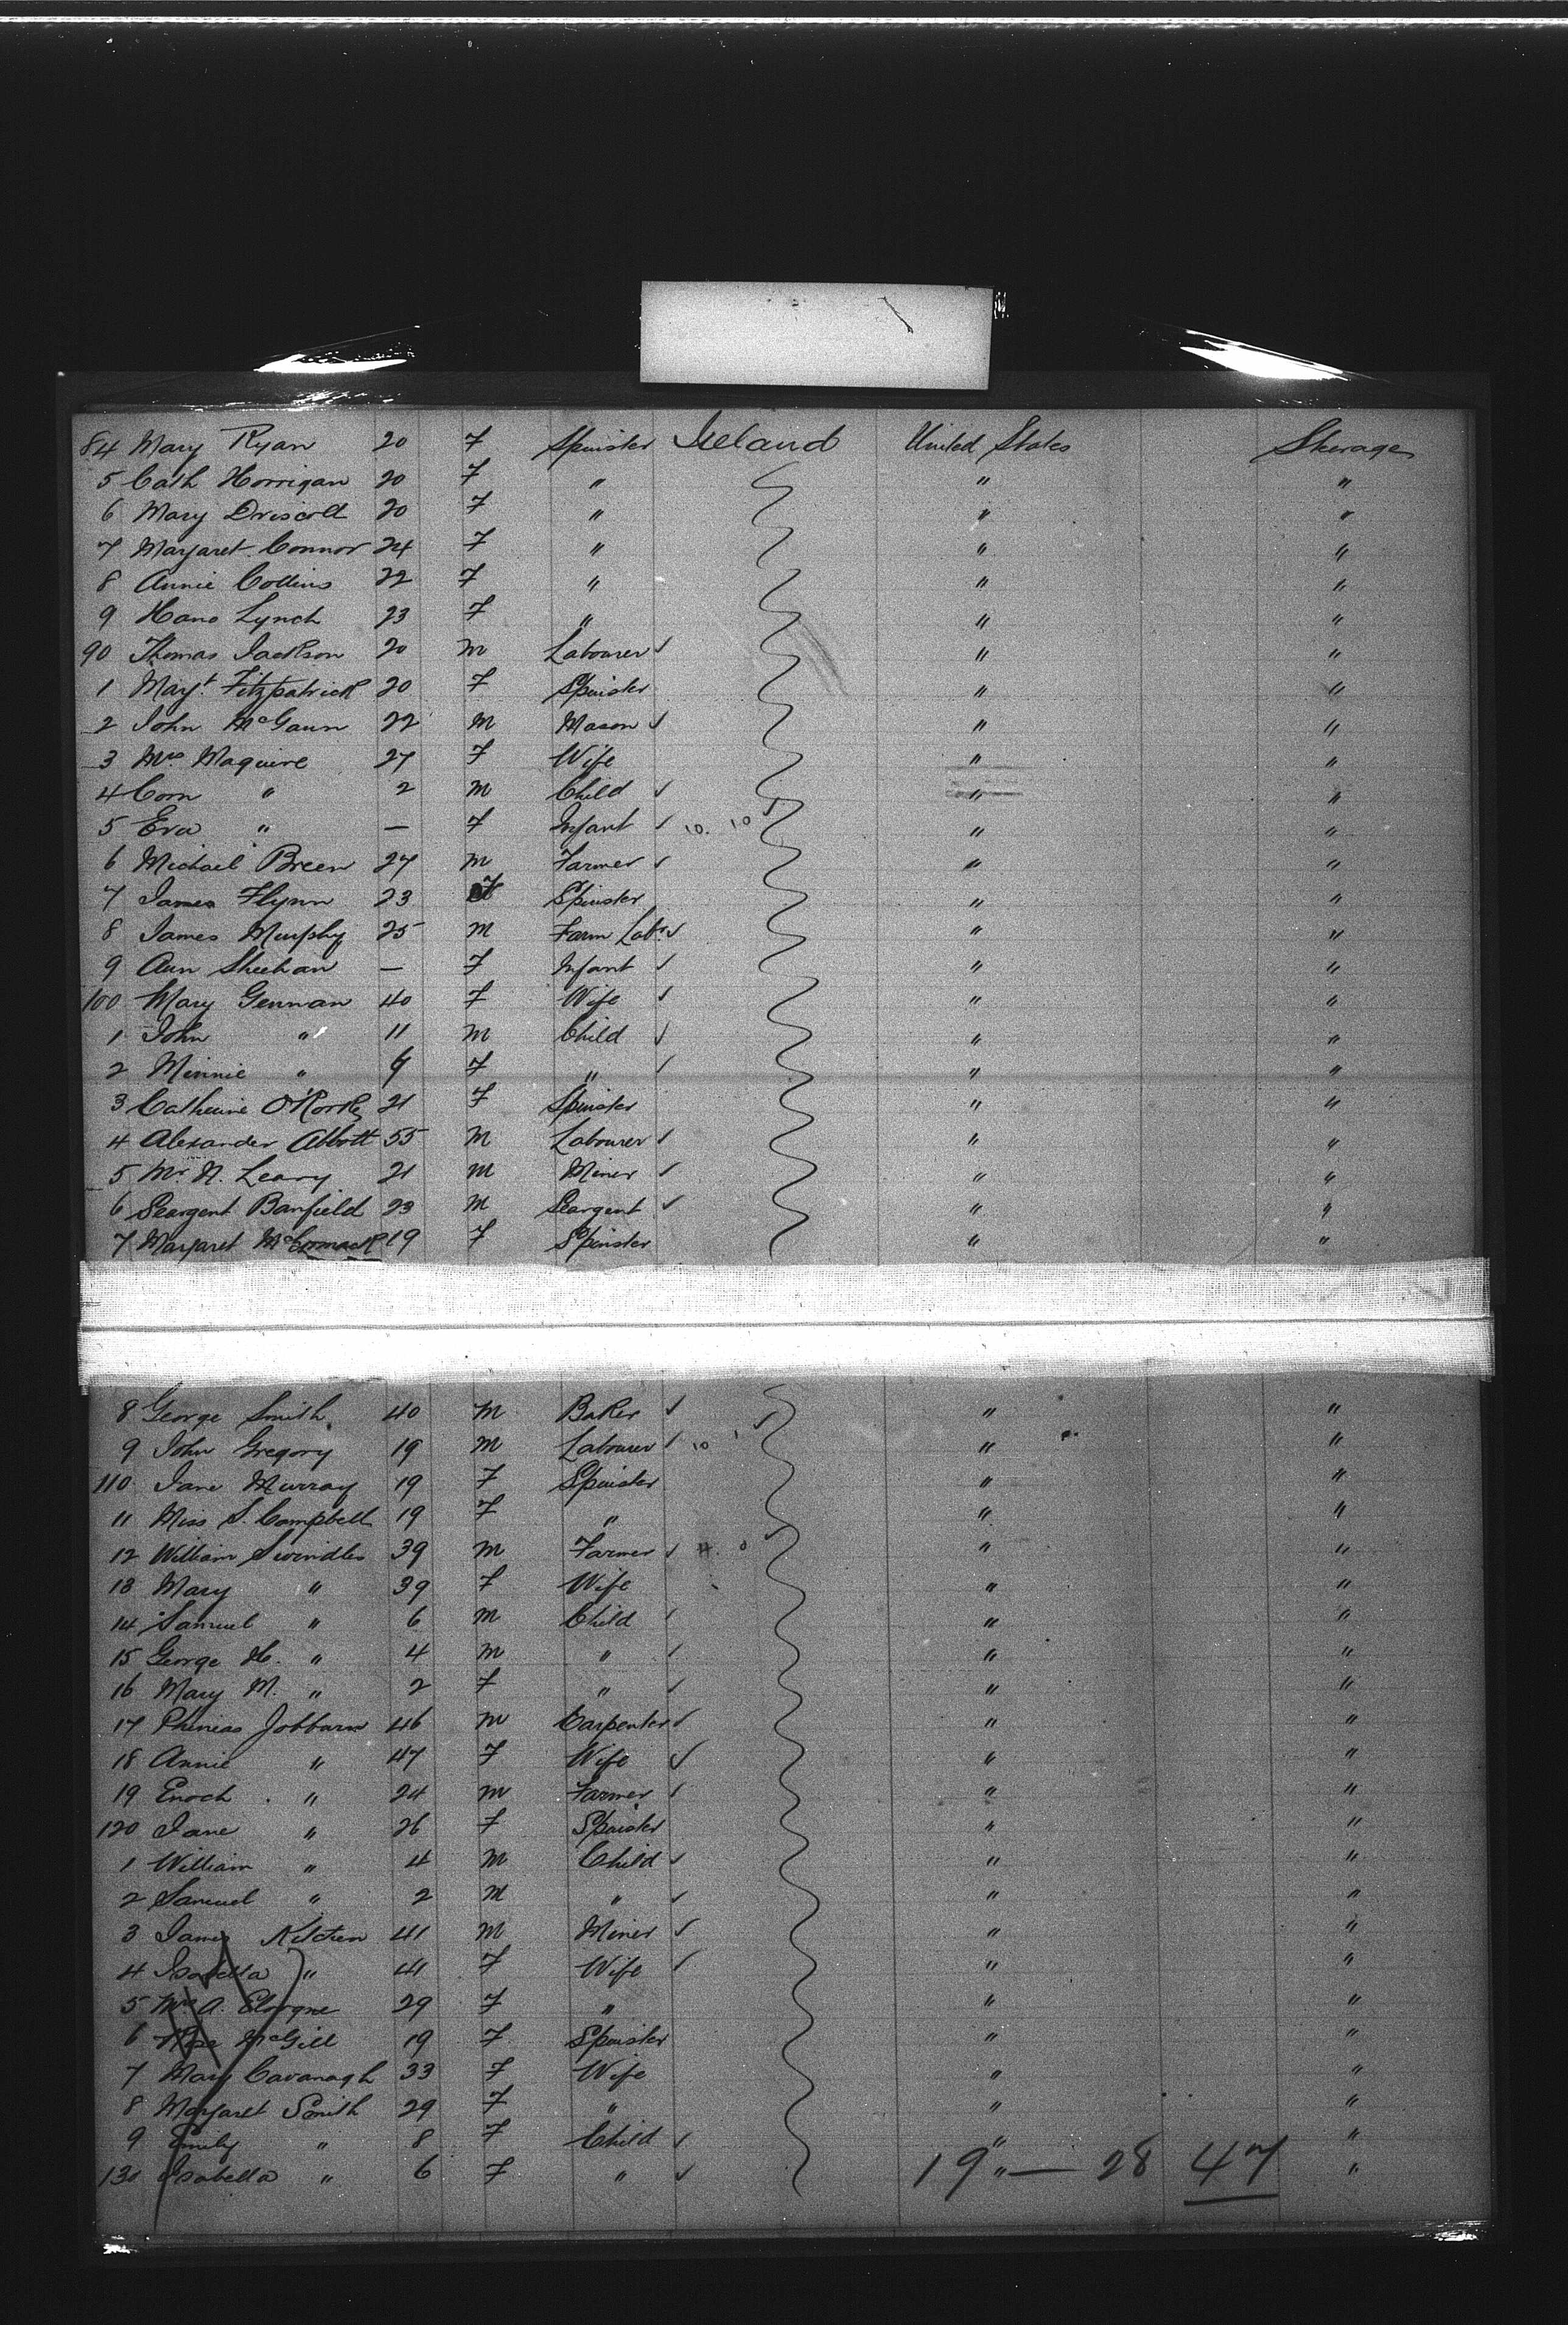 84 Mary Ryan 20 F Spinster Ireland United States Steerage
5 Cath Horrigan 20 F " " "
6 Mary Driscoll 20 F " " "
7 Margaret Connor 24 F " " "
8 Annie Collins 22 F " " "
9 Hano Lynch 23 F " " "
90 Thomas Jackson 20 M Labourer ✓ " "
1 Mayt. Fitzpatrick 20 F Spinster " "
2 John McGaun 22 M Mason ✓ " "
3 Mrs Maguire 27 F Wife " "
4 Corn " 2 M Child ✓ " "
5 Eva " — F Infant ✓ 10. 10 ✓ " "
6 Michael Breen 27 M Farmer ✓ " "
7 James Flynn 23 F Spinster " "
8 James Murphy 25 M Farm Labr ✓ " "
9 Ann Sheehan — F Infant ✓ " "
100 Mary Gennan 40 F Wife ✓ " "
1 John " 11 M Child ✓ " "
2 Minnie " 9 F " ✓ " "
3 Catherine O'Rorke 21 F Spinster " "
4 Alexander Abbott 55 M Labourer ✓ " "
5 Mr N. Leary 21 M Miner ✓ " "
6 Seargent Banfield 23 M Seargent ✓ " "
7 Margaret McCormack 19 F Spinster " "
8 George Smith 40 M Baker ✓ " "
9 John Gregory 19 M Labourer ✓ 10 1 ✓ " "
110 Jane Murray 19 F Spinster " "
11 Miss S. Campbell 19 F " " "
12 William Swindles 39 M Farmer ✓ 4. 0 ✓ " "
13 Mary " 39 F Wife " "
14 Samuel " 6 M Child ✓ " "
15 George H. " 4 M " ✓ " "
16 Mary M. " 2 F " ✓ " "
17 Phineas Jobburn 46 M Carpenter ✓ " "
18 Annie " 47 F Wife ✓ " "
19 Enoch " 24 M Farmer ✓ " "
120 Jane " 26 F Spinster " "
1 William " 4 M Child ✓ " "
2 Samuel " 2 M " ✓ " "
3 James Kitchen 41 M Miner ✓ " "
4 Isabella " 41 F Wife ✓ " "
5 Mrs A. 29 F " " "
6 McGill 19 F Spinster " "
7 Mary Cavanagh 33 F Wife " "
8 Margaret Smith 29 F " " "
9 Emily " 8 F Child ✓ " "
130 Isabella " 6 F " ✓ " "
19 — 28 47